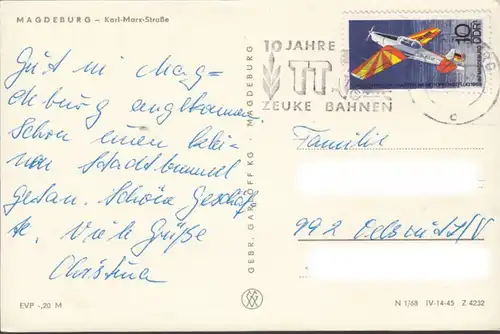 MAGDEBURG – Karl-Marx-Straße
Gut in Mag=
deburg angekommen
Schon einen klei=
nen Stadtbummel
getan. Schöne Geschäf
te. Viele Grüße
Christina
EVP -,20 M
GEBR. GARLOFF KG · MAGDEBURG
10 JAHRE
TT
ZEUKE BAHNEN
10
DDR
c
Familie
992 Oelsnitz/V
N 1/68 IV-14-45 Z 4232